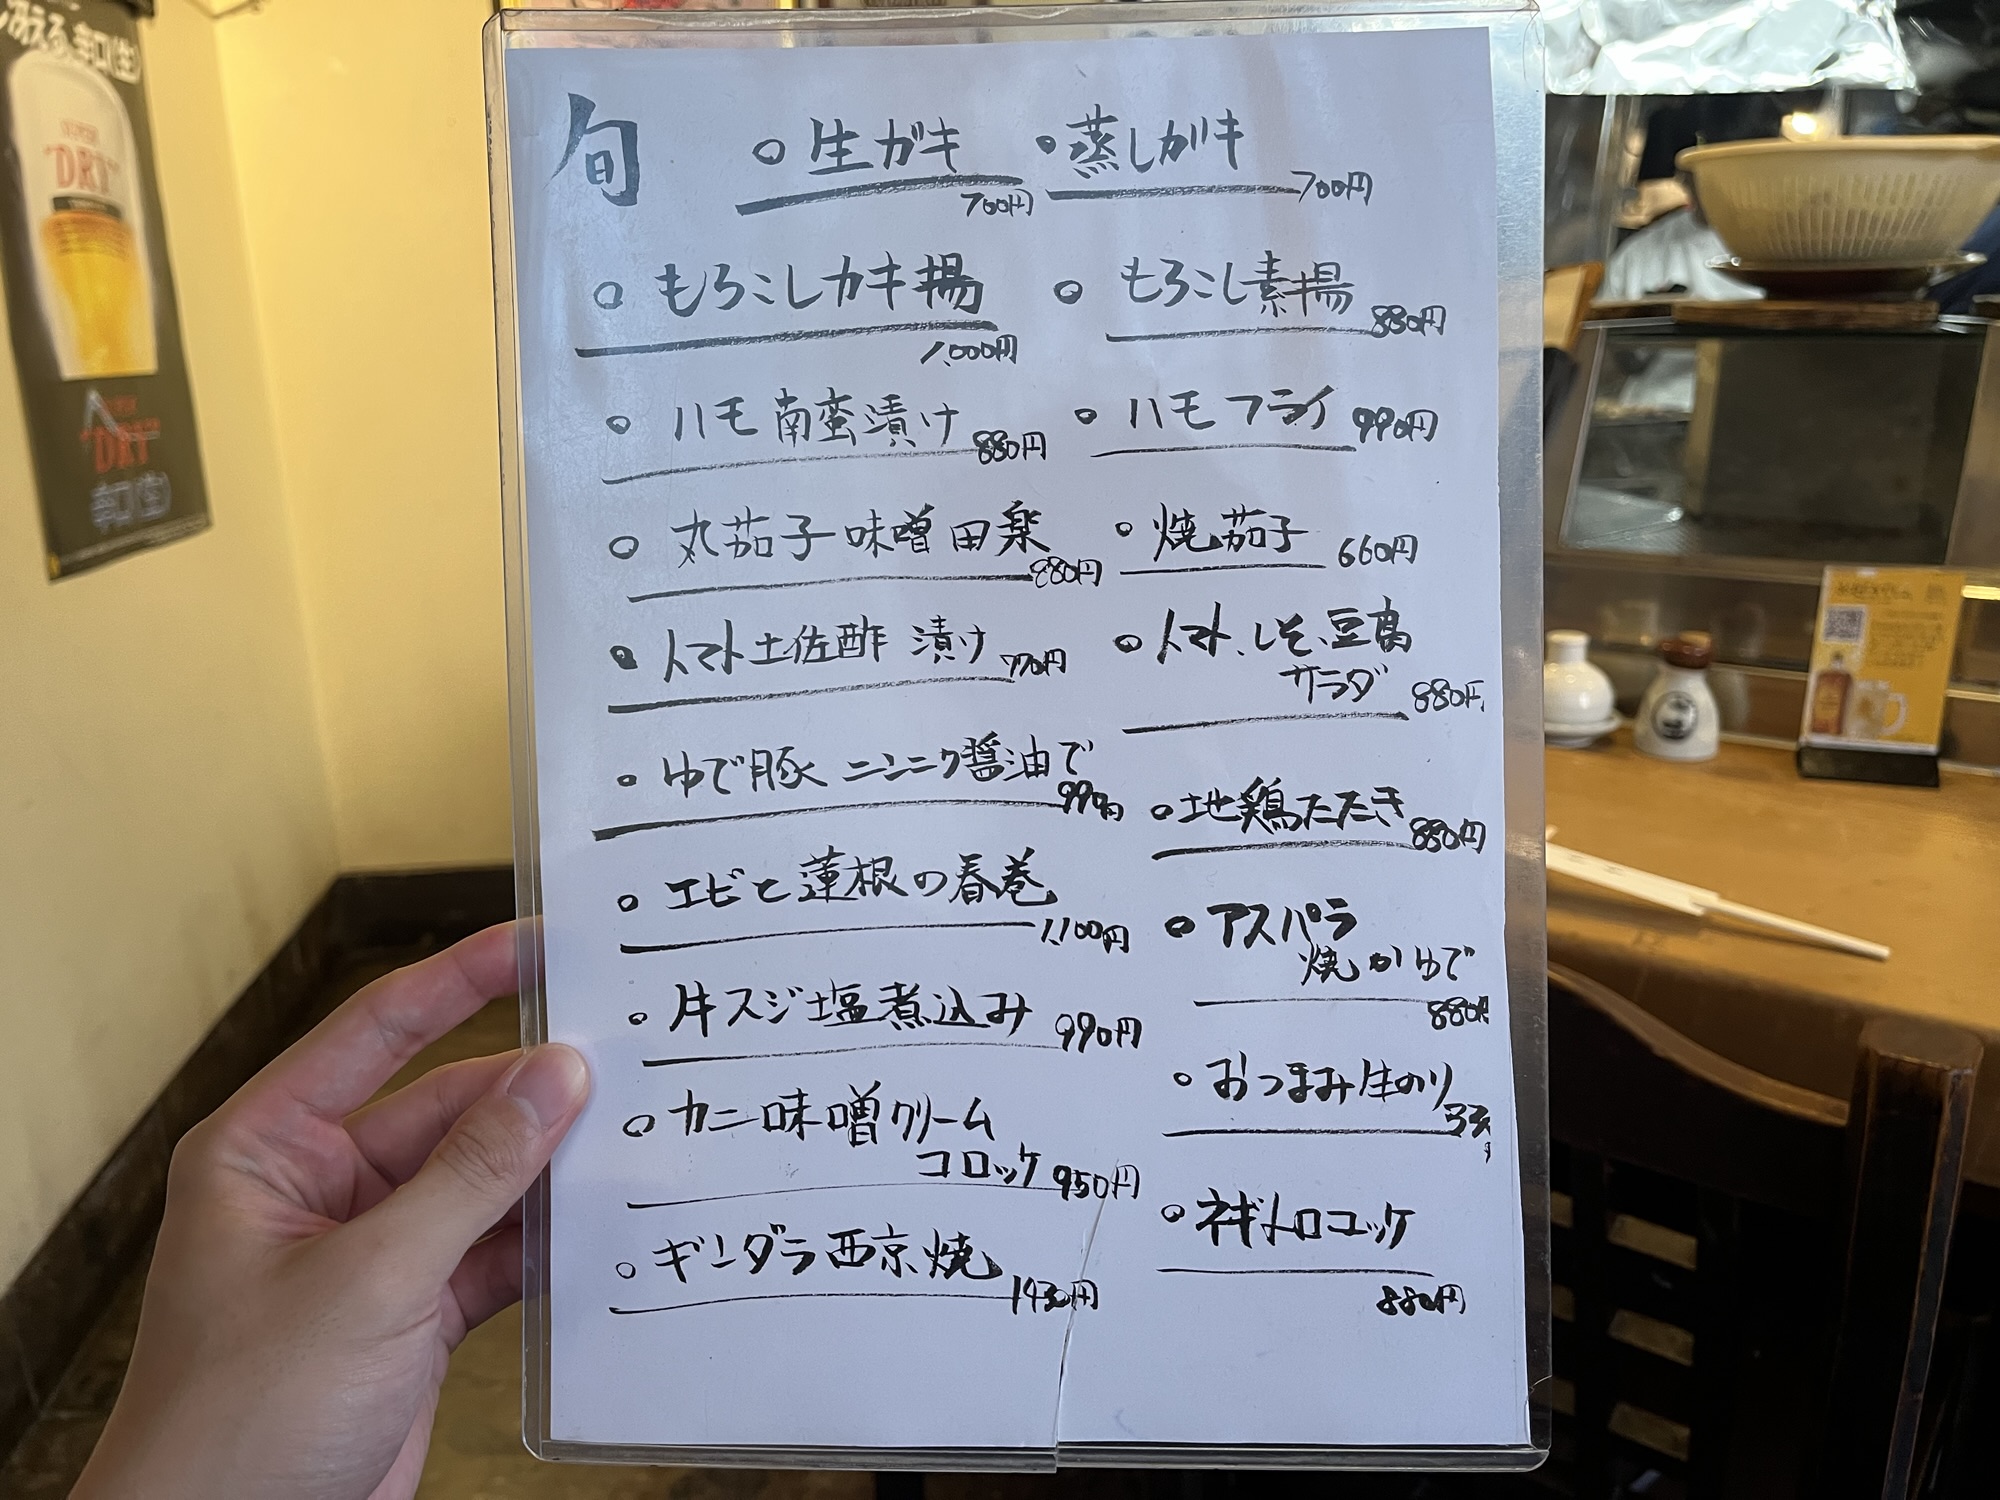 みえる、辛口(生)
SUPER
"DRY"
SUPER
"DRY"
辛口(生)
旬
○生ガキ
700円
○蒸しガキ
700円
○もろこしカキ揚
1,000円
○もろこし素揚
880円
○ハモ南蛮漬け
880円
○ハモフライ 990円
○丸茄子味噌田楽
880円
○焼茄子 660円
○トマト土佐酢漬け
770円
○トマト、しそ、豆腐
サラダ 880円
○ゆで豚 ニンニク醤油で
990円
○地鶏たたき
880円
○エビと蓮根の春巻
1,100円
○アスパラ
焼かゆで
880円
○牛スジ塩煮込み 990円
○おつまみ生のり
33
○カニ味噌クリーム
コロッケ 950円
○ネギトロユッケ
880円
○ギンダラ西京焼
1430円